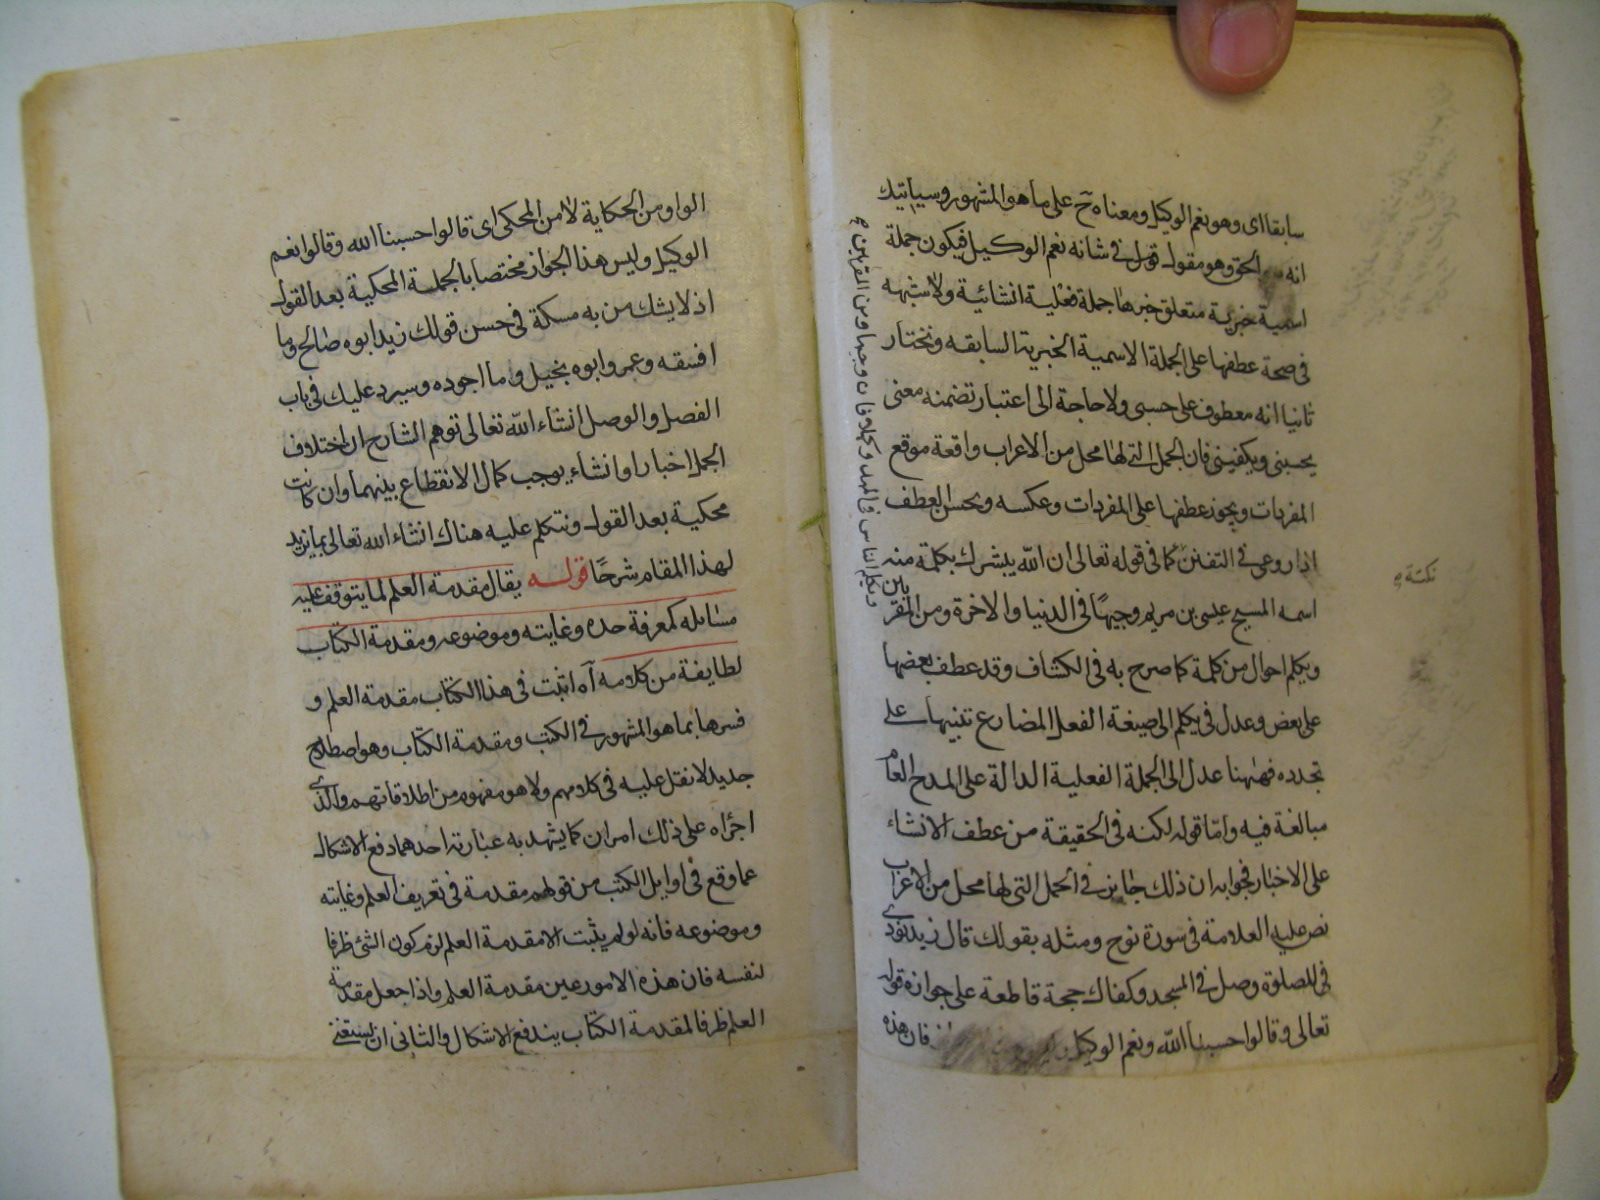 سابقا اى وهو نعم الوكيل ومعناه ح على ما هو المشهور وسياتيك
انه الحق وهو مقول فى شانه نعم الوكيل فيكون جملة
اسمية خبرية متعلق خبرها جملة فعلية انشائية ولا شبهة
فى صحة عطفها على الجملة الاسمية الخبرية السابقه ونختار
ثانيا انه معطوف على حسبى ولا حاجة الى اعتبار تضمنه معنى
يحسبنى ويكفينى فان الجمل التى لها محل من الاعراب واقعة موقع
المفردات ويجوز عطفها على المفردات وعكسه ويحسن العطف
اذا روعى فى التفنن كما فى قوله تعالى ان الله يبشرك بكلمة منه
اسمه المسيح عيسى بن مريم وجيها فى الدنيا والاخرة ومن المقربين
ويكلم احوال من كلمة كما صرح به فى الكشاف وقد عطف بعضها
على بعض وعدل فى يكلم الى صيغة الفعل المضارع تنبيها على
تجدده فههنا عدل الى الجملة الفعلية الدالة على المدح العام
مبالغة فيه واما قوله لكنه فى الحقيقة من عطف الانشاء
على الاخبار فجوابه ان ذلك جايز فى الجمل التى لها محل من الاعراب
نص عليه العلامة فى سورة نوح ومثله بقولك قال زيد نودى
للصلوة وصل فى المسجد وكفاك حجة قاطعة على جوازه قوله
تعالى وقالوا حسبنا الله ونعم الوكيل فان هذه
نكتة
ويكلم الناس فى المهد وكهلا فان وجيها ومن المقربين
الواو من الحكاية لا من المحكى اى قالوا حسبنا الله وقالوا نعم
الوكيل وليس هذا الجواز مختصا بالجملة المحكية بعد القول
اذ لا يشك من به مسكة فى حسن قولك زيد ابوه صالح وما
افسقه وعمرو ابوه بخيل وما اجوده وسيرد عليك فى باب
الفصل والوصل انشاء الله تعالى توهم الشارح ان اختلاف
الجمل اخبارا وانشاء يوجب كمال الانقطاع بينهما وان كانت
محكية بعد القول ونتكلم عليه هناك انشاء الله تعالى بما يزيد
لهذا المقام شرحا قوله يقال مقدمة العلم لما يتوقف عليه
مسائله كمعرفة حده وغايته وموضوعه ومقدمة الكتاب
لطايفة من كلامه اه اثبت فى هذا الكتاب مقدمة العلم و
فسرها بما هو المشهور فى الكتب ومقدمة الكتاب وهو اصطلاح
جديد لا نقل عليه فى كلامهم ولا هو مفهوم من اطلاقاتهم والذى
اجراه على ذلك امران كما يشهد به عبارته احدهما دفع الاشكال
عما وقع فى اوايل الكتب من قولهم مقدمة فى تعريف العلم وغايته
وموضوعه فانه لو لم يثبت الا مقدمة العلم لزم كون الشئ ظرفا
لنفسه فان هذه الامور عين مقدمة العلم واذا جعل مقدمة
العلم ظرفا لمقدمة الكتاب يندفع الاشكال والثانى ان يستغنى